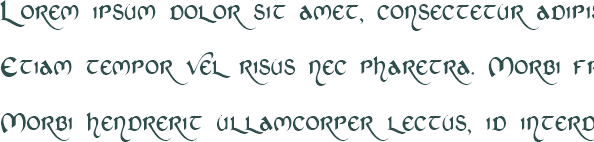 Lorem ipsum dolor sit amet, consectetur adipis
Etiam tempor vel risus nec pharetra. Morbi fr
Morbi hendrerit ullamcorper lectus, id interd